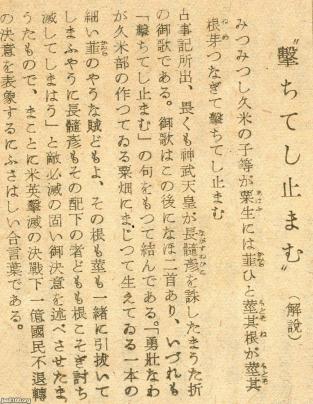 〝擊ちてし止まむ〟（解說）
みつみつし久米の子等が粟生には韮ひと莖其根が莖其
根芽つなぎて擊ちてし止まむ
古事記所出、畏くも神武天皇が長髓彥を誅したまうた折
の御歌である。御歌はこの後になほ二首あり、いづれも
「擊ちてし止まむ」の句をもつて結んである。「勇壯なわ
が久米部の作つてゐる粟畑にまじつて生えてゐる一本の
細い韮のやうな賊どもよ、その根も莖も一緖に引拔いて
しまふやうに長髓彥もその配下の者どもも根こそぎ討ち
滅してしまはう」と敵必滅の固い御決意を述べさせたま
うたもので、まことに米英擊滅の決戰下一億國民不退轉
の決意を表象するにふさはしい合言葉である。